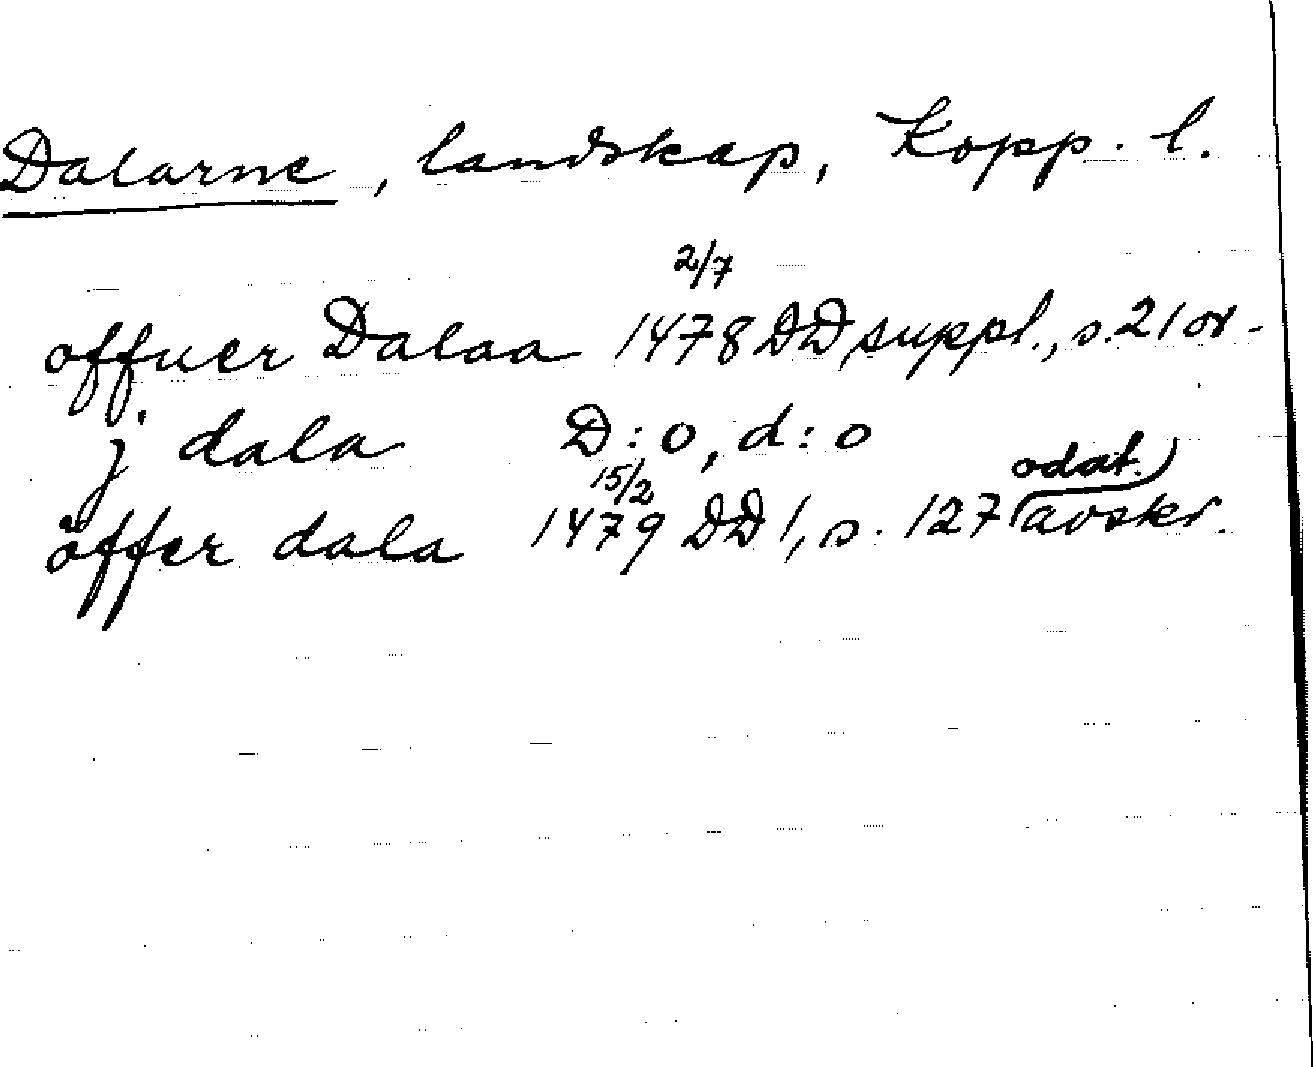 Dalarne, landskap, Kopp. l.
2/7
offuer Dalaa 1478 DD suppl., s. 21 or-
j dala D:o, d:o
15/2 odat.)
öffer dala 1479 DD 1, s. 127 (avskr.